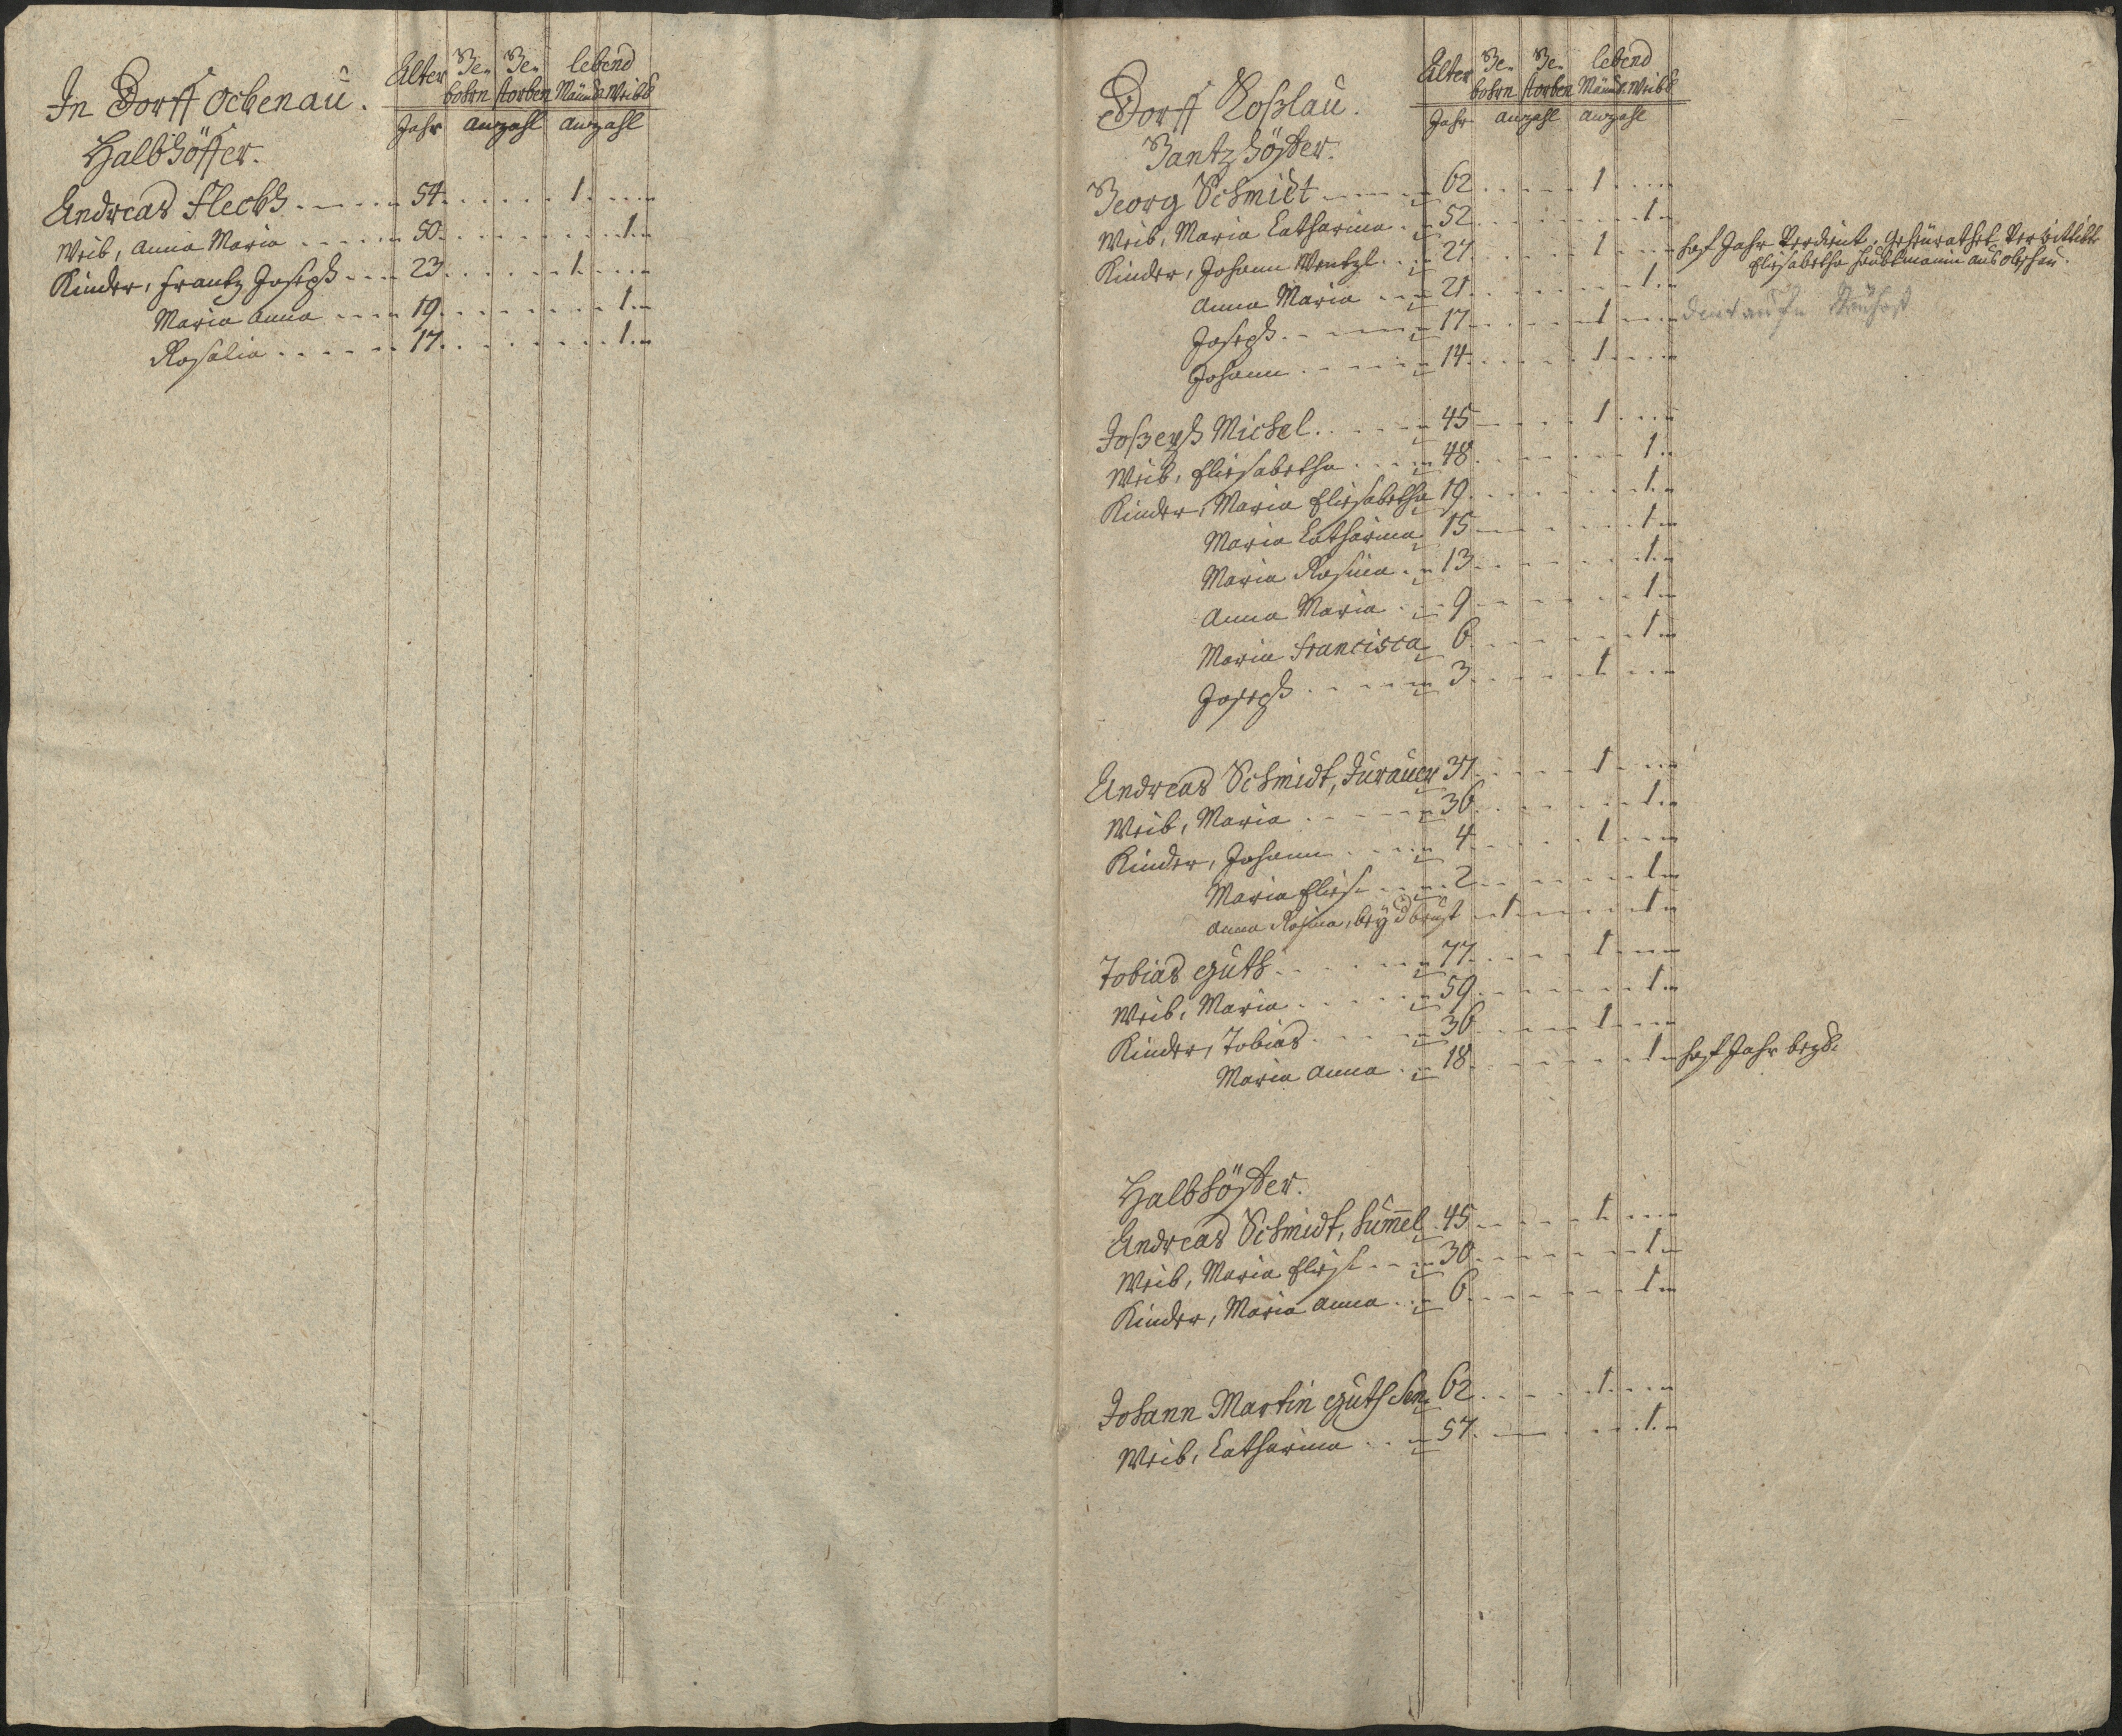 In Dorff Ochenau.
Alter Ge- Ge- lebend
bohrn storben Männl. Weibl.
Jahr anzahl anzahl
Halbhöffer.
Andreas Flechs 54 1
Weib, Anna Maria 50 1
Kinder, Frantz Joseph 23 1
Maria Anna 19 1
Rosalia 17 1
Dorff Koßlau.
Alter Ge- Ge- lebend
bohrn storben Männl. Weibl.
Jahr anzahl anzahl
Gantzhöffer.
Georg Schmidt 62 1
Weib, Maria Catharina 52 1
Kinder, Johann Wentzl 27 1 Hof Jahr Verdient. Geheürathet
Elisabetha Haubtmanin aus
Anna Maria 21 1
Joseph 17 1
Johann 14 1
Joßeph Michel 45 1
Weib, Elisabetha 48 1
Kinder, Maria Elisabetha 19 1
Maria Catharina 15 1
Maria Rosina 13 1
Anna Maria 9 1
Maria Francisca 6 1
Joseph 3 1
Andreas Schmidt, Jurauer 37 1
Weib, Maria 36 1
Kinder, Johann 4 1
Maria Elis. 2 1
Anna Rosina, bey d brüst 1 1
Tobias Guth 77 1
Weib, Maria 59 1
Kinder, Tobias 36 1
Maria Anna 18 1 Hof Jahr
Halbhöffer.
Andreas Schmidt, Hum̄el 45 1
Weib, Maria Elis. 30 1
Kinder, Maria Anna 6 1
Johann Martin Guth Sen. 62 1
Weib, Catharina 57 1